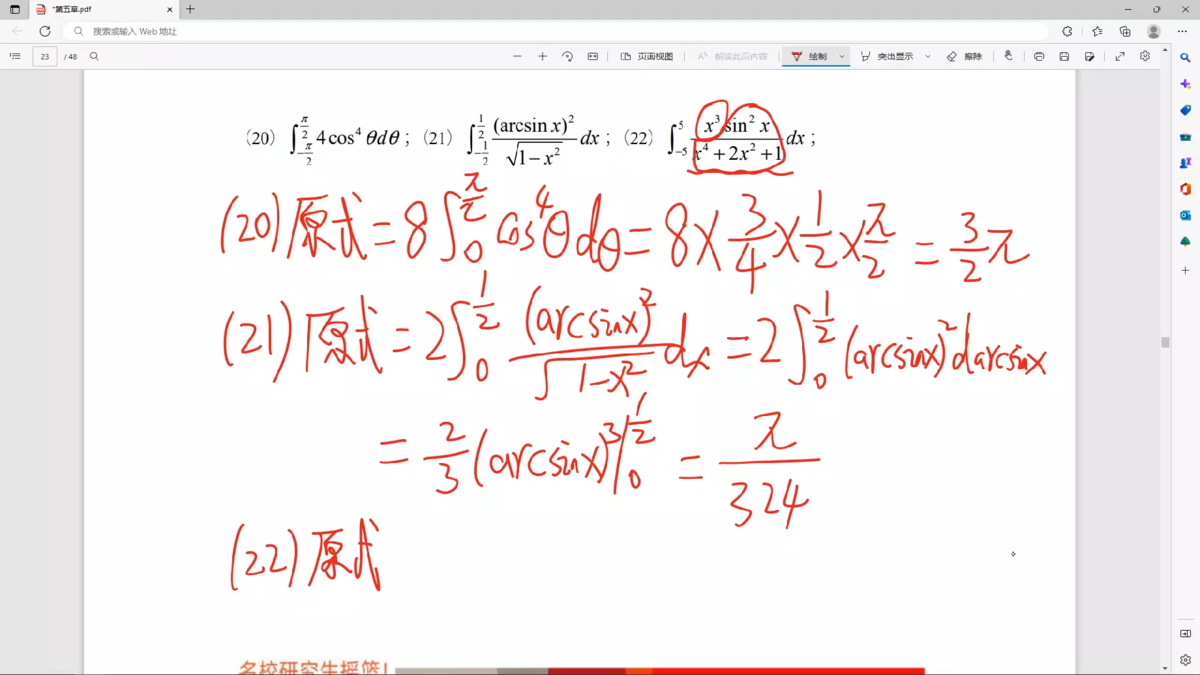 "第五章.pdf
搜索或输入 Web 地址
23 / 48 页面视图 朗读此页内容 绘制 突出显示 擦除
(20) ∫_{-π/2}^{π/2} 4cos⁴θdθ ; (21) ∫_{-1/2}^{1/2} (arcsin x)²/√(1-x²) dx ; (22) ∫_{-5}^{5} x³ sin² x/(x⁴+2x²+1) dx ;
(20) 原式 = 8∫_0^{π/2} cos⁴θdθ = 8×3/4×1/2×π/2 = 3/2 π
(21) 原式 = 2∫_0^{1/2} (arcsinx)²/√(1-x²) dx = 2∫_0^{1/2} (arcsinx)² darcsinx
= 2/3 (arcsinx)³|_0^{1/2} = π/324
(22) 原式
名校研究生摇篮!